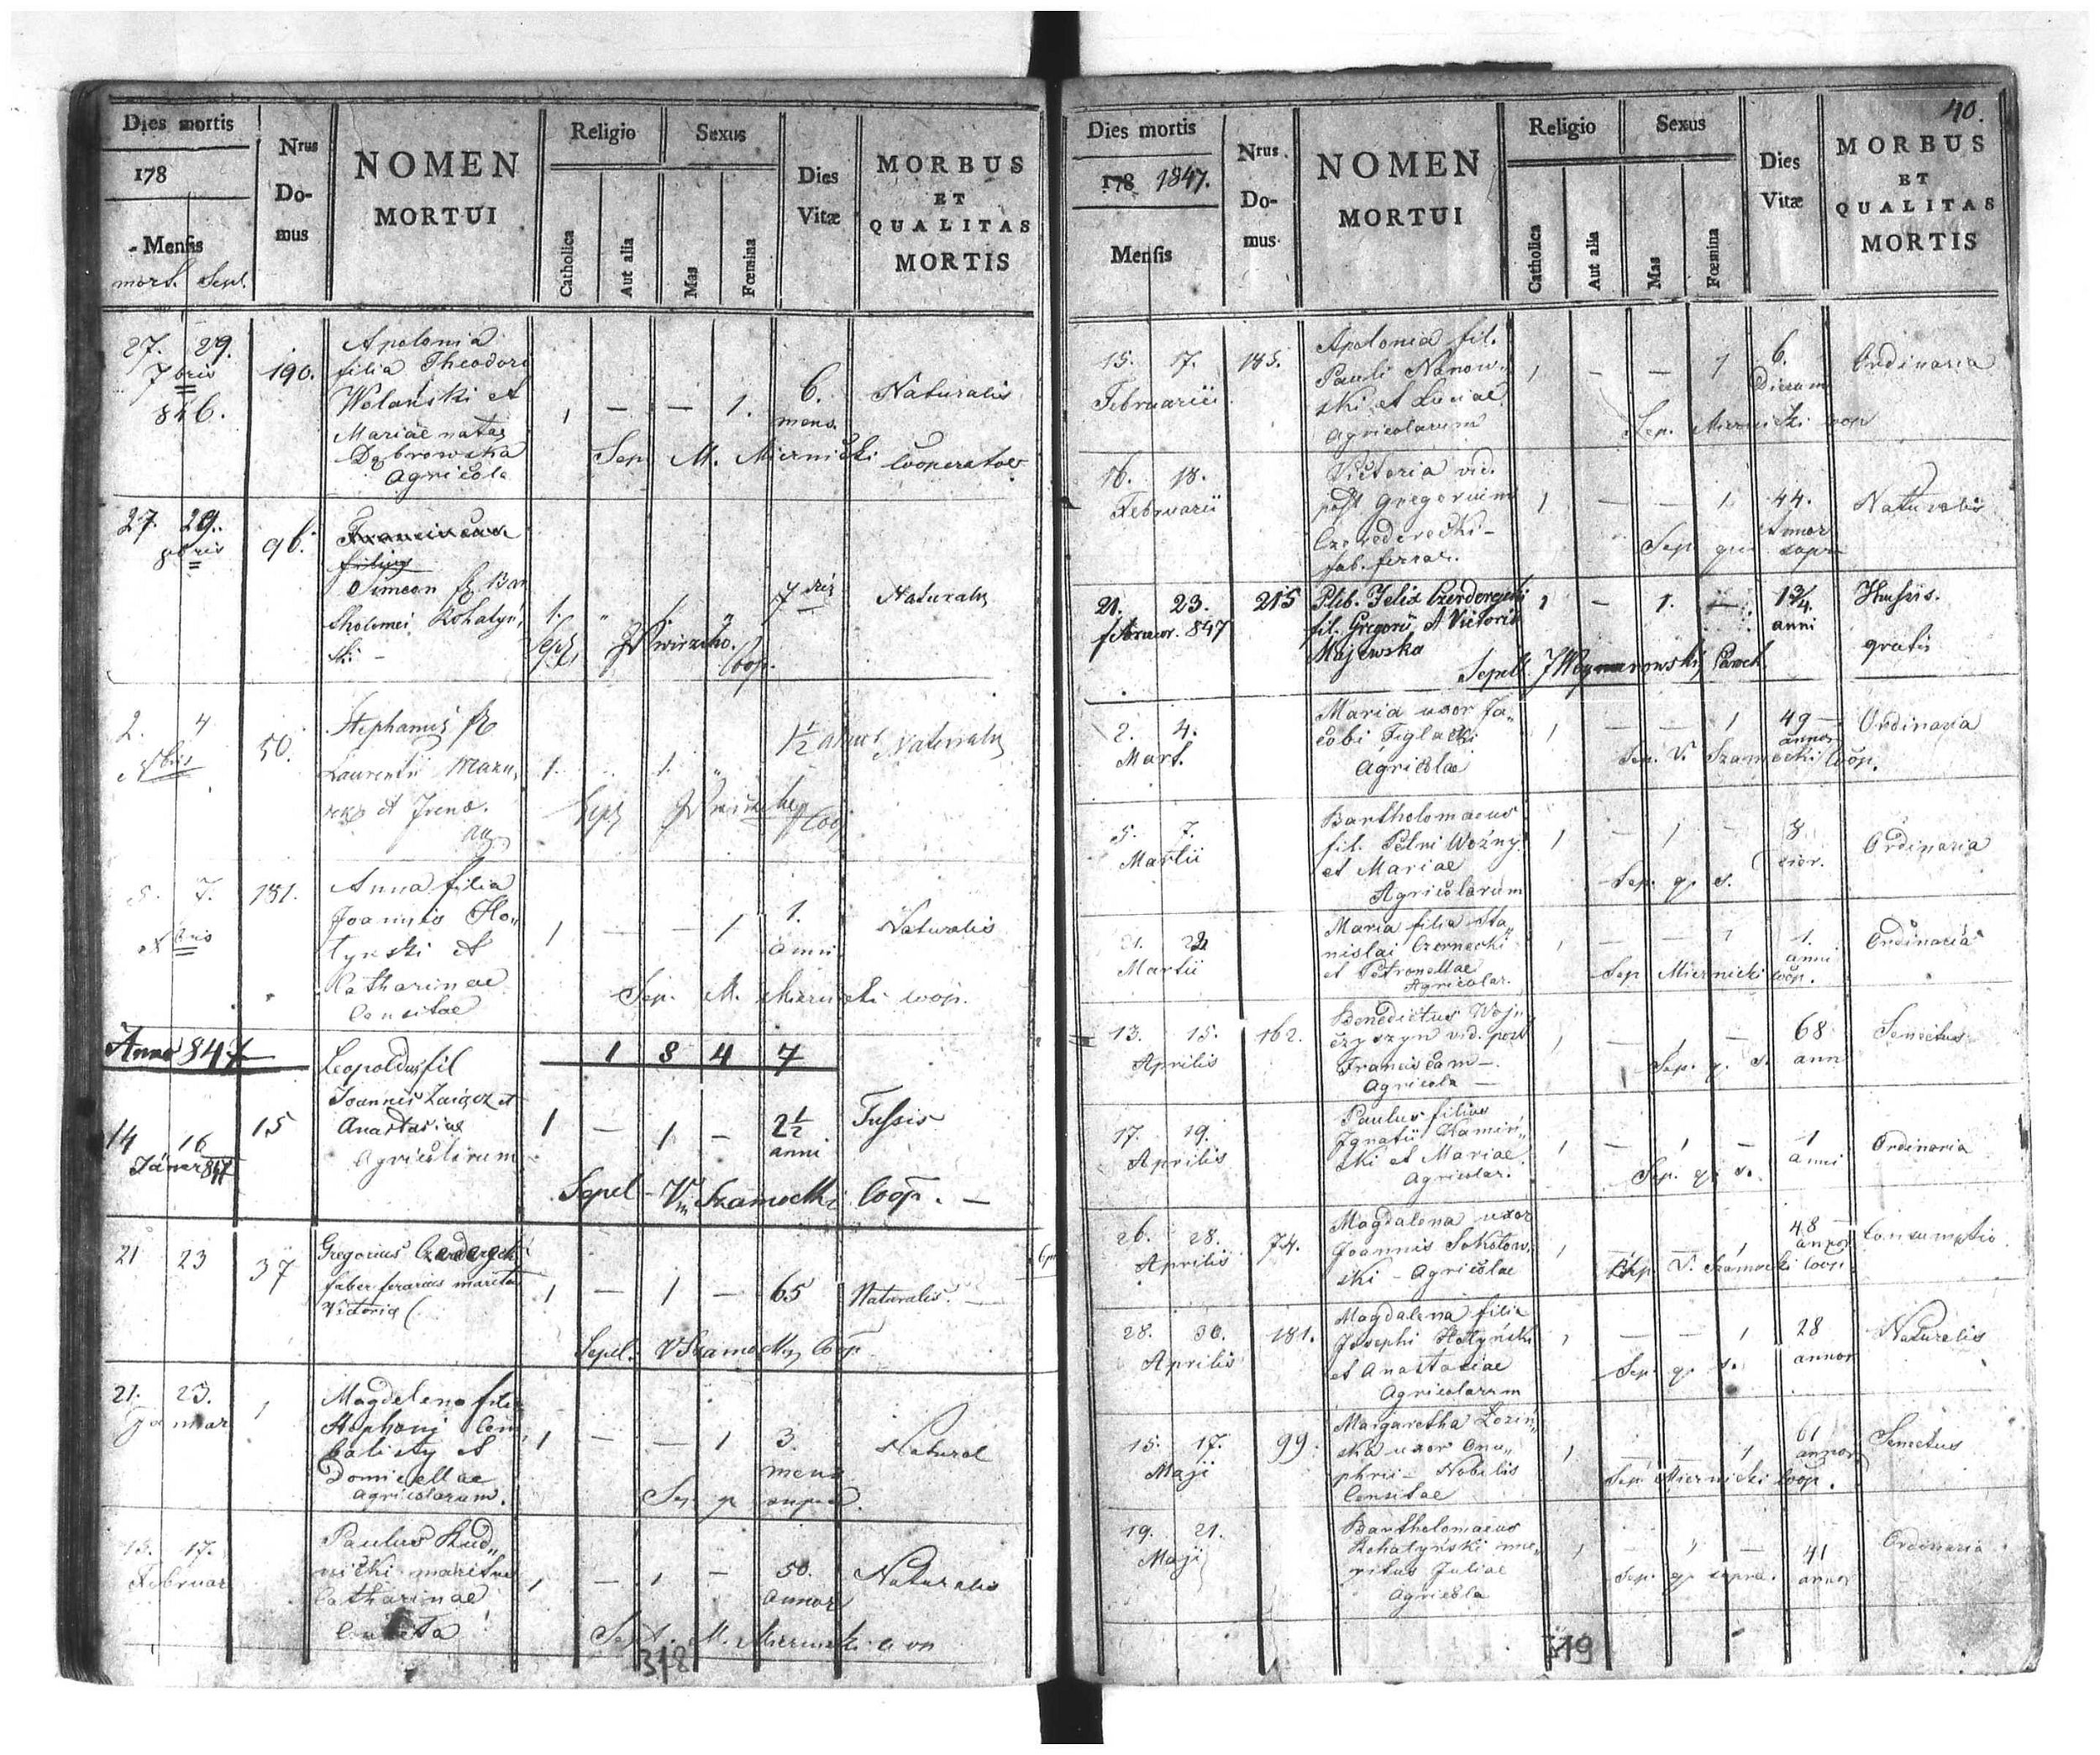 Dies mortis
178
Mensis
mort. Sepl.
Nrus
Do-
mus
NOMEN
MORTUI
Religio
Catholica
Aut alia
Sexus
Mas
Fœmina
Dies
Vitæ
MORBUS
ET
QUALITAS
MORTIS
27. 29.
7bris
846.
190.
Apolonia
filia Theodori
Wolański et
Mariae natae
Dąbrowska
Agricola
1 — — 1.
6.
mens.
Naturalis
Sep. M. Miernicki Cooperator
27. 29.
8bris
96.
Franciscus
filius
Simeon
1. " 1. "
7
Naturalis
Coop.
2. 4
50.
Stephanus
Laurentii
et Irenae
1. 1. "
1½
Naturalis
5. 7.
181.
Anna filia
Joannis Ho„
tynski et
Catharinae
Censitae
1 — — 1
1.
anni
Naturalis
Sep. M. Miernicki coop.
Anno 847
1 8 4 7
14 16
Januar 847
15
Leopoldus fil
Joannis Zaiącz et
Anastasiae
Agricolarum
1 — 1 —
2½
anni
Tussis
Sepel. V. Szamocki Coop. —
21 23
37
Gregorius Czerderecki
faber ferarius maritus
Victoria
1 — 1 — 65
Naturalis. —
Sepel. V Szamocki Coop
21. 23.
Januar
1
Magdelena filia
Stephani Cem„
balisty et
Domicellae
agricolarum.
1 — — 1
3.
mens
Natural
Sep. q supra.
15. 17.
Februar
Paulus Rud„
nicki maritus
Catharinae
Censita
1 — 1 —
50.
annor
Naturalis
Sepl. M. Miernicki
318
40.
Dies mortis
178 1847.
Mensis
Nrus
Do-
mus
NOMEN
MORTUI
Religio
Catholica
Aut alia
Sexus
Mas
Fœmina
Dies
Vitæ
MORBUS
ET
QUALITAS
MORTIS
15. 17.
Februarii
185.
Apolonia fil.
Pauli Nanow„
ski et Luciae
Agricolarum
1 — — 1
6.
Dierum
Ordinaria
Sep. Miernicki coop
16. 18.
Februarii
Victoria vid.
post Gregorium
Czerederecki —
fab. ferrar.
1 — — 1
44.
Annor
Naturalis
Sep. qui supra
21. 23.
februar. 847
215
Felix Czerderecki
fil. Gregorii et Victoria
Majewska
1 — 1. —
1¾
anni
Tussis.
gratis
Sepel. J Weymarowski Paroch
2. 4.
Mart.
Maria uxor Ja„
cobi Teglacki
Agricolae
1 — — 1
49
annor
Ordinaria
Sep. V. Szamocki Coop.
5. 7.
Martii
Bartholomaeus
fil. Petri Woźny
et Mariae
Agricolarum
1 — 1 —
8
dier.
Ordinaria
Sep. q. s.
21. 22
Martii
Maria filia Sta„
nislai Czernecki
et Petronellae
Agricolar.
1 — — 1
1.
anni
Ordinaria
Sep. Miernicki Coop.
13. 15.
Aprilis
162.
Benedictus Woj„
czyszyn vid. post
Franciscam —
Agricola —
1 — 1 —
68
ann
Senectus
Sep. q. s.
17. 19.
Aprilis
Paulus filius
Ignatii Kamin„
ski et Mariae
Agricolar.
1 — 1 —
1
anni
Ordinaria
Sep. q. s.
26. 28.
Aprilis
74.
Magdalena uxor
Joannis Sokołow„
ski — Agricolae
1
48
annor
Consumptio
Sep. V. Szamocki Coop.
28. 30.
Aprilis
181.
Magdalena filia
Josephi Hotyński
et Anastasiae
Agricolarum
1 — — 1
28
annor
Naturalis
Sep. q. s.
15. 17.
Maji
99.
Margaretha Łoziń„
ska uxor Onu„
phrii — Nobilis
Censitae
1 1
61
annor
Senectus
Sep. Miernicki Coop.
19. 21.
Maji
Bartholomaeus
Rohatyński ma„
ritus Juliae
Agricola
1 — 1 —
41
annor
Ordinaria
Sep. q. supra.
319